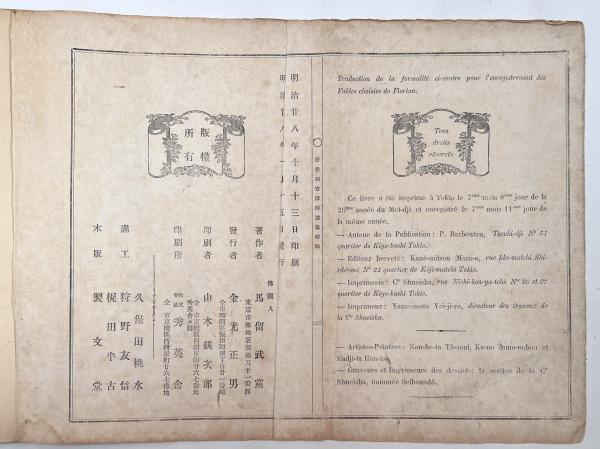 Traduction de la formalité ci-contre pour l'enregistrement des
Fables choisies de Florian.
Tous
droits
réservés
Ce livre a été imprimé à Tokio le 7ème mois 8ème jour de la
28ème année du Mei-dji et enregistré le 7ème mois 11ème jour de
la même année.
— Auteur de la Publication: P. Barboutau, Tsoukidji No 51
quartier de Kiyo-bashi Tokio.
— Editeur breveté: Kané-mitsou Masa-o, rue Ida-matchi
No 21 quartier de Kôjimatchi Tokio.
— Imprimerie: Cie Shueisha, rue Nichi-kon-ya-tchô Nos 26 et 27
quartier de Kiyo-bashi Tokio.
— Imprimeur: Yama-moto Yei-ji-ro, directeur des travaux de
la Cie Shueisha.
— Artistes-Peintres: Kou-bo-ta Tô-soui, Ka-no Tomo-nobou et
Kadji-ta Han-ko.
— Graveurs et Imprimeurs des dessins: la section de la Cie
Shueisha, nommée Seiboundô.
版權
所有
明治廿八年十月十三日印刷
明治廿八年十月十五日發行
佛國人
著作者 馬留武黨
東京市築地居留地五十一番館
發行者 金光正男
印刷者 山本鍈次郎
印刷所 株式會社 秀英舍
畵工 久保田桃水
狩野友信
梶田半古
木版 製文堂